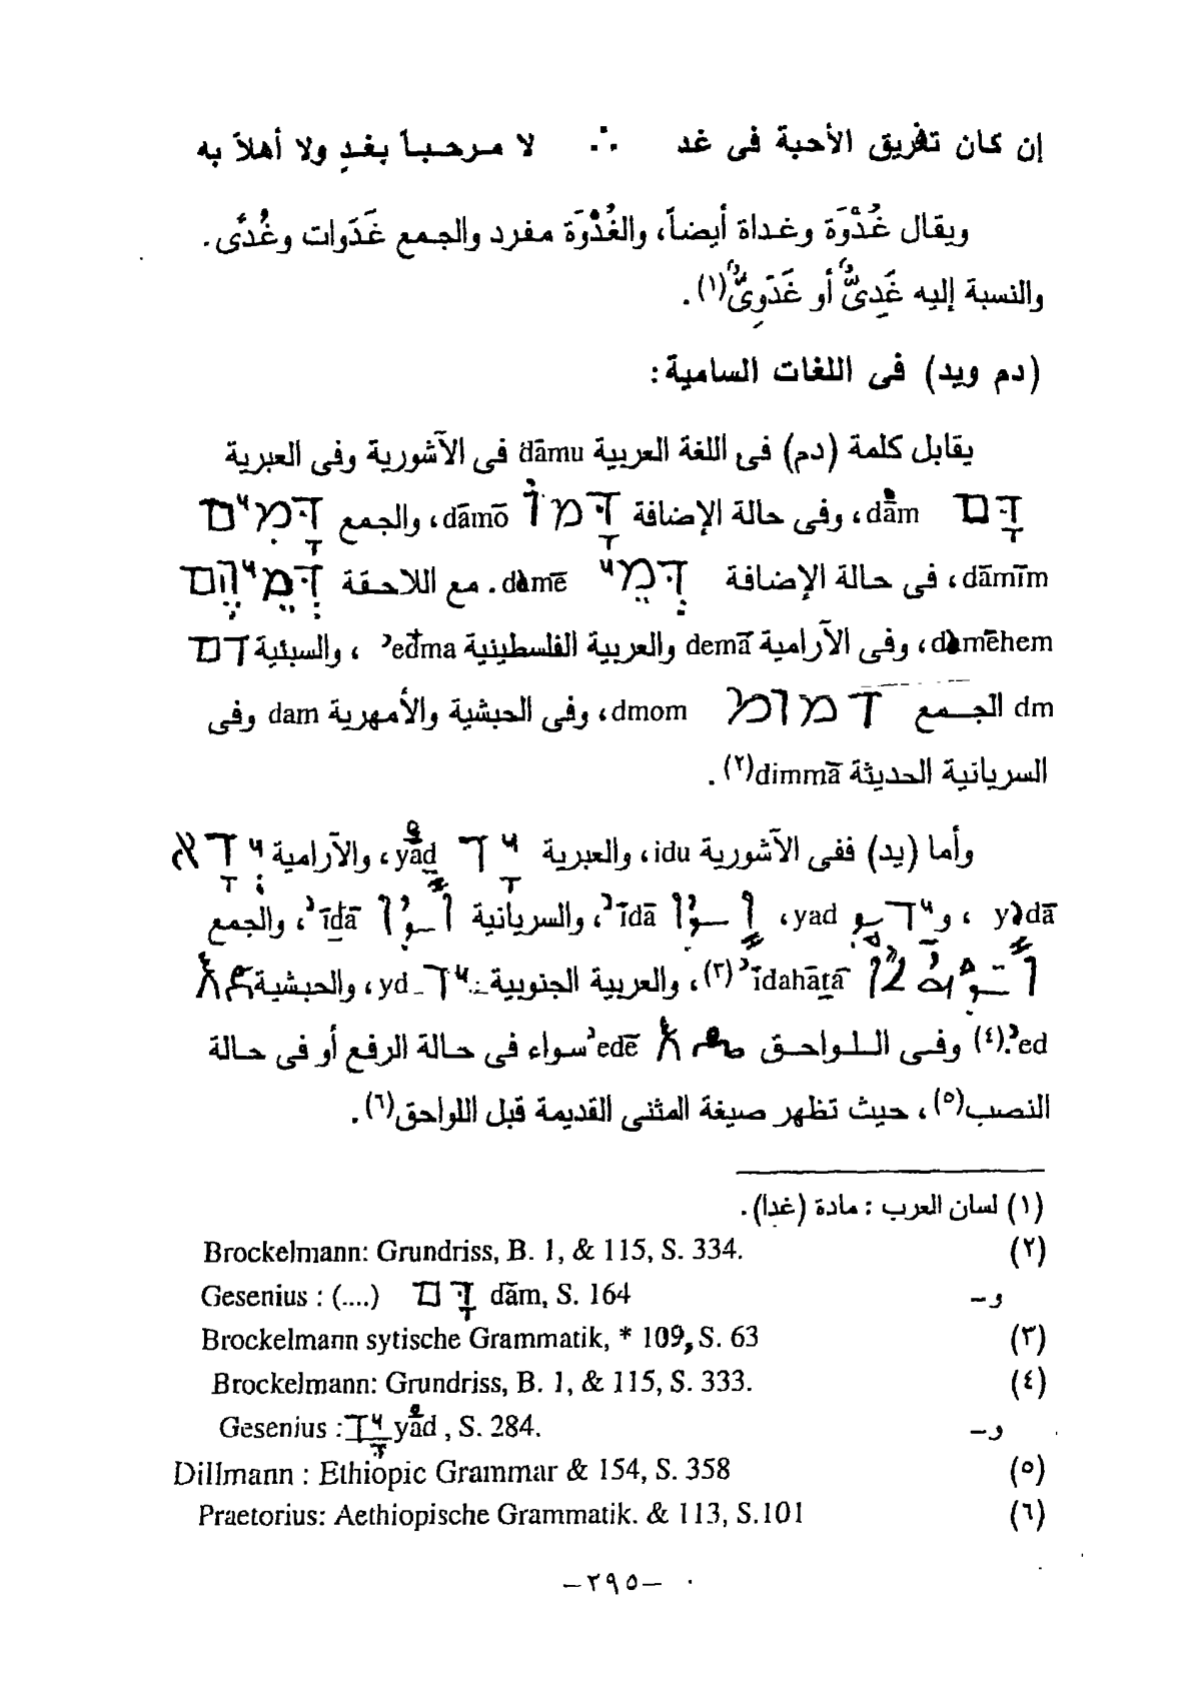 إن كان تفريق الأحبة فى غد ∴ لا مرحباً بغدٍ ولا أهلاً به
ويقال غُدْوَة وغداة أيضاً، والغُدْوَة مفرد والجمع غَدَوات وغُدًى.
والنسبة إليه غَدِىٌّ أو غَدَوِىٌّ(١).
(دم ويد) فى اللغات السامية:
يقابل كلمة (دم) فى اللغة العربية dāmu فى الآشورية وفى العبرية
דָּם dām، وفى حالة الإضافة דָּמוֹ dāmō، والجمع דָּמִים
dāmīm، فى حالة الإضافة דְּמֵי damē. مع اللاحقة דְּמֵיהֶם
damēhem، وفى الآرامية demā والعربية الفلسطينية ʾedma ، والسبئية דם
dm الجمع דמומ dmom، وفى الحبشية والأمهرية dam وفى
السريانية الحديثة dimmā(٢).
وأما (يد) ففى الآشورية idu، والعبرية יָד yād، والآرامية יְדָא
yadā ، و yad، ʾīdā، والسريانية ʾīdā، والجمع
ʾīdahāṯā(٣)، والعربية الجنوبية יד yd، والحبشية እድ
ʾed.(٤) وفى اللواحق እዴ ʾedē سواء فى حالة الرفع أو فى حالة
النصب(٥)، حيث تظهر صيغة المثنى القديمة قبل اللواحق(٦).
(١) لسان العرب : مادة (غدا).
(٢) Brockelmann: Grundriss, B. 1, & 115, S. 334.
و- Gesenius : (....) דָּם dām, S. 164
(٣) Brockelmann sytische Grammatik, * 109, S. 63
(٤) Brockelmann: Grundriss, B. 1, & 115, S. 333.
و- Gesenius : יָד yād , S. 284.
(٥) Dillmann : Ethiopic Grammar & 154, S. 358
(٦) Praetorius: Aethiopische Grammatik. & 113, S.101
-٢٩٥-